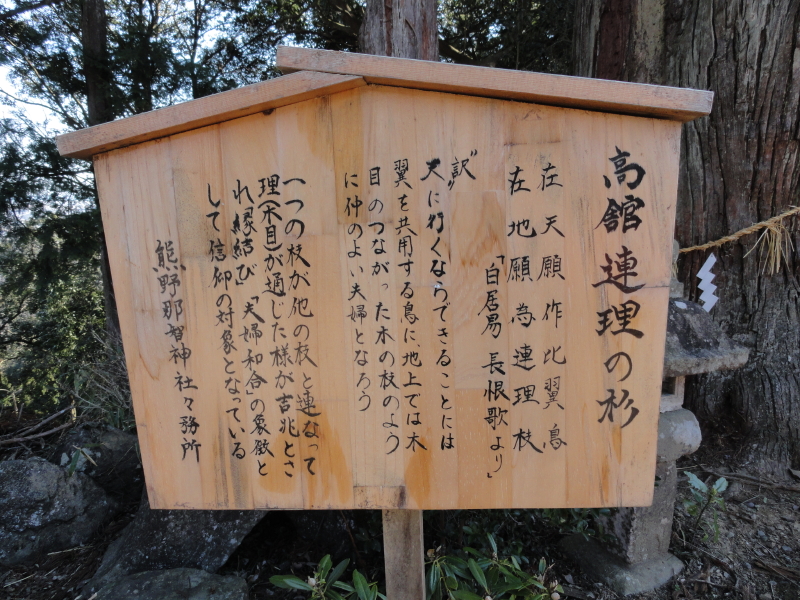 高舘連理の杉
在天願作比翼鳥
在地願為連理枝
「白居易 長恨歌より」
〝訳〟
天に行くならできることには
翼を共用する鳥に地上では木
目のつながった木の枝のよう
に仲のよい夫婦となろう
一つの枝が他の枝と連なって
理(木目)が通じた様が吉兆とさ
れ「縁結び」「夫婦和合」の象徴と
して信仰の対象となっている
熊野那智神社々務所